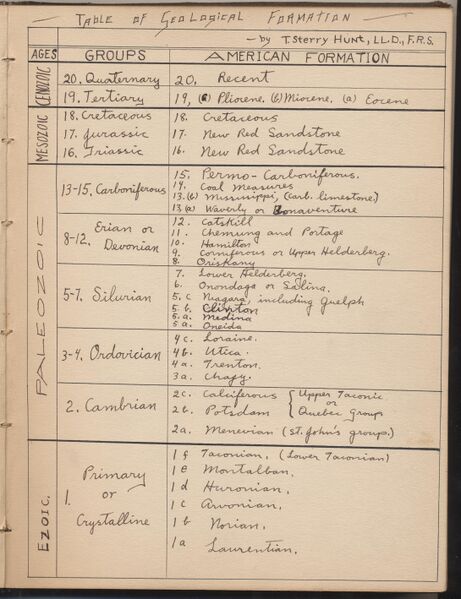 TABLE OF GEOLOGICAL FORMATION
—by T. Sterry Hunt, LL.D., F.R.S.
AGES GROUPS AMERICAN FORMATION
CENOZOIC
20. Quaternary 20. Recent
19. Tertiary 19, (c) Pliorene. (b) Miocene. (a) Eocene
MESOZOIC
18. Cretaceous 18. Cretaceous
17. Jurassic 17. New Red Sandstone
16. Triassic 16. New Red Sandstone
PALEOZOIC
13-15. Carboniferous
15. Permo-Carboniferous.
14. Coal Measures
13.(b) Mississippi, (carb. limestone.)
13.(a) Waverly or Bonaventure
8-12. Erian or
Devonian
12. Catskill
11. Chemung and Portage
10. Hamilton
9. Corniferous or Upper Helderberg.
8. Oriskany
5-7. Silurian
7. Lower Helderberg.
6. Onondaga or Salina.
5. c Niagara, including Guelph
5. b. Clinton
5. a. Medina
5 a. Oneida
3-4. Ordovician
4c. Loraine.
4b. Utica.
4a. Trenton.
3a. Chazy.
2. Cambrian
2c. Calciferous { Upper Taconic
or
2b. Potsdam Quebec Groups
2a. Menevian (St. John's groups.)
EZOIC.
1. Primary
or
Crystalline
1 f Taconian, (Lower Taconian)
1 e Montalban.
1 d Huronian.
1 c Arvonian.
1 b Norian.
1 a Laurentian.